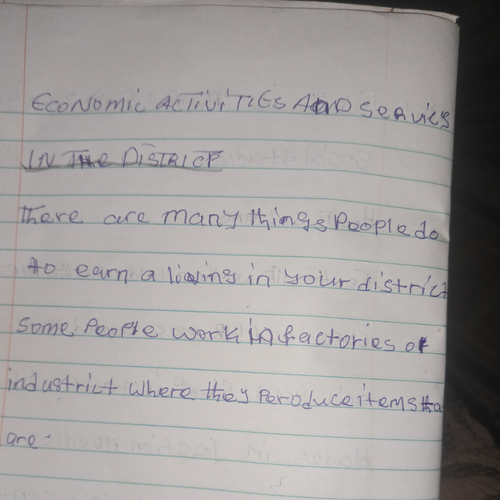 ECONOMIC ACTIVITIES AND SERVICS
IN THE DISTRICT
there are many things people do
to earn a living in your district
some people work in factories or
industrict where they peroduce items tha
are: